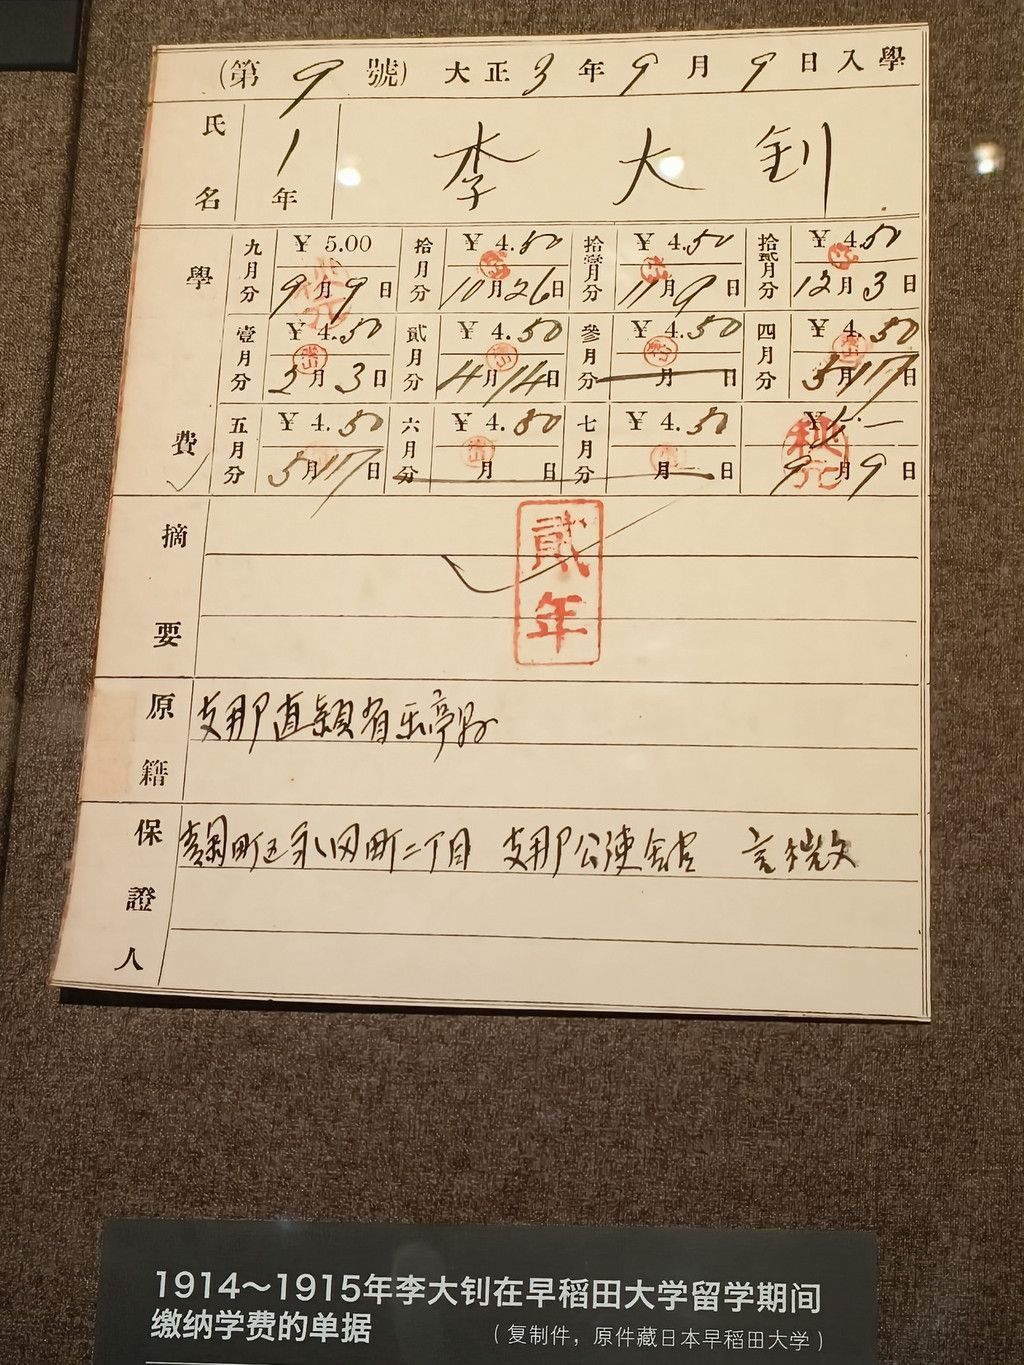 (第9號) 大正3年9月9日入學
氏名 1年 李大釗
學費
九月分 ¥5.00 9月9日
拾月分 ¥4.50 10月26日
拾壹月分 ¥4.50 11月9日
拾貳月分 ¥4.50 12月3日
壹月分 ¥4.50 2月3日
貳月分 ¥4.50 4月14日
參月分 ¥4.50 月 日
四月分 ¥4.50 5月17日
五月分 ¥4.50 5月17日
六月分 ¥4.50 月 日
七月分 ¥4.50 月 日
¥5.— 9月9日
摘要
貳年
原籍 支那直隷省乐亭县
保證人 麹町区永田町二丁目 支那公使館 言微
1914～1915年李大钊在早稻田大学留学期间
缴纳学费的单据 （复制件，原件藏日本早稻田大学）